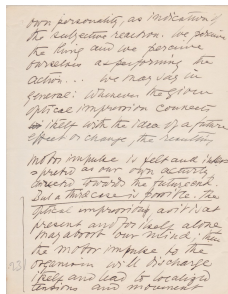 own personality, as indication of
the subjective reaction. We perceive
the thing and we perceive
ourselves as performing the
action... We may say in
general: Whenever the given
optical impression connects
itself with the idea of a future
effect or change, the resulting
motor impulse is felt and
as our own activity
directed towards the future event.
But a third case is possible. The
optical impression as it is at
present and for itself alone
may absorb our mind; then
the motor impulse to the
organism will discharge
itself and lead to localized
tensions and movement